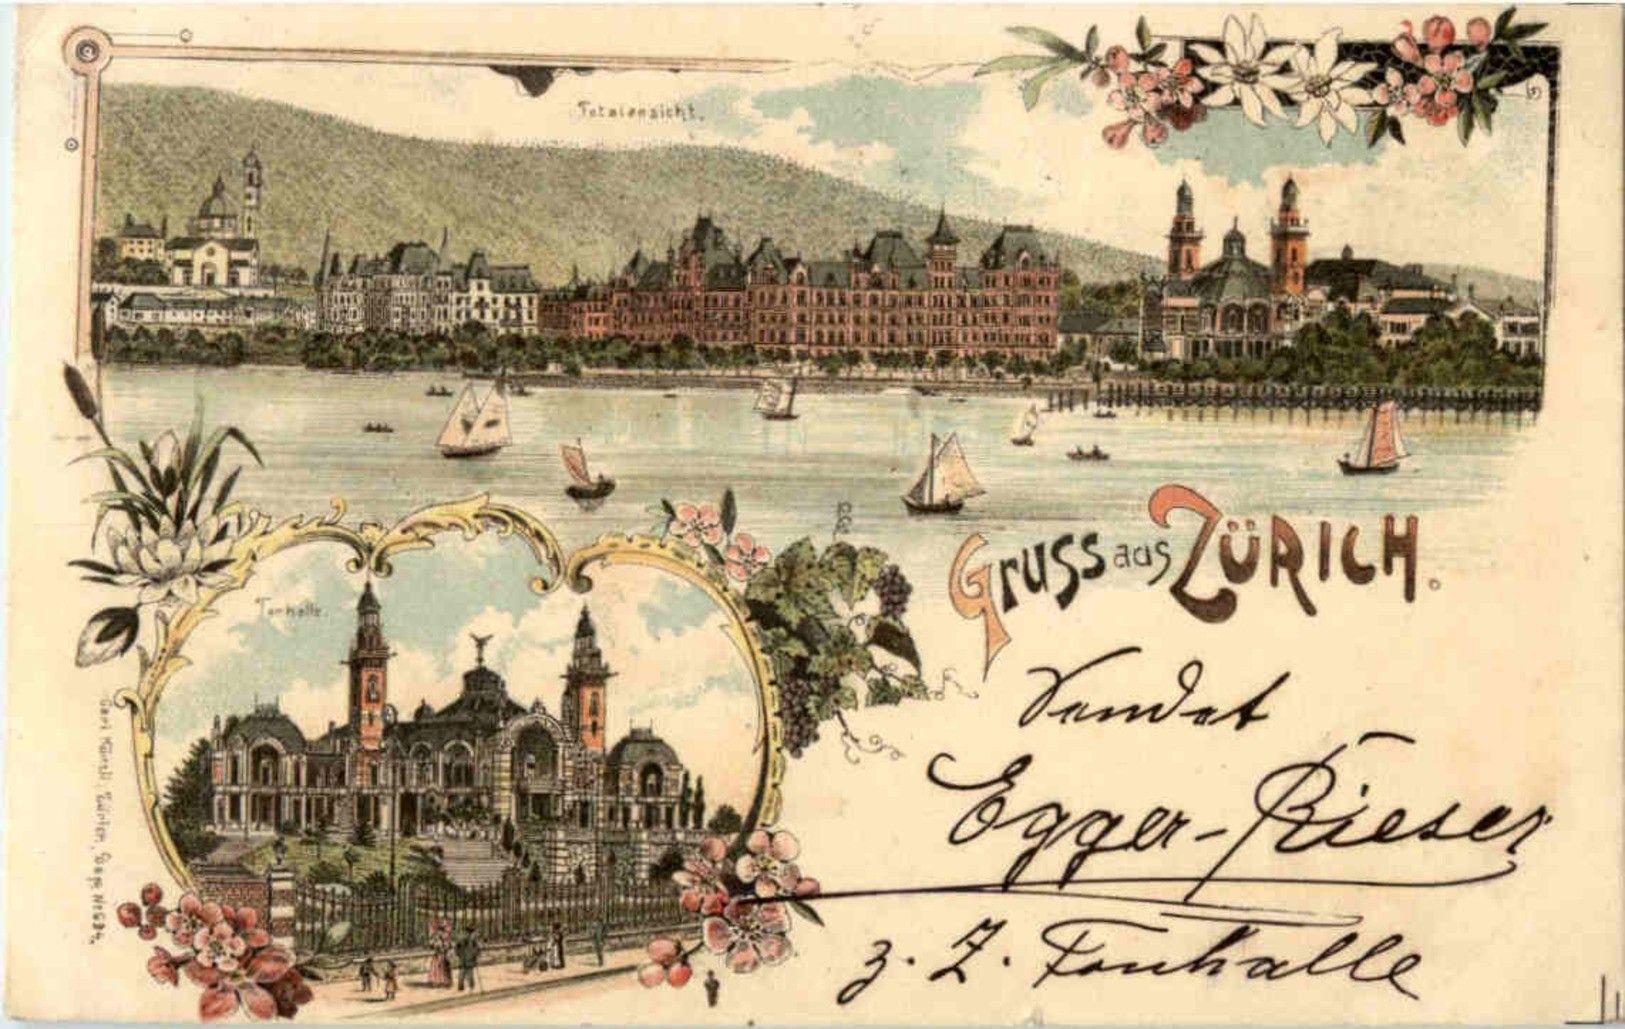 Totalansicht.
Gruss aus ZÜRICH.
Tonhalle.
Sendet
Egger-Rieser
z. Z. Tonhalle
Carl Künzli, Zürich, Dep. No 534.